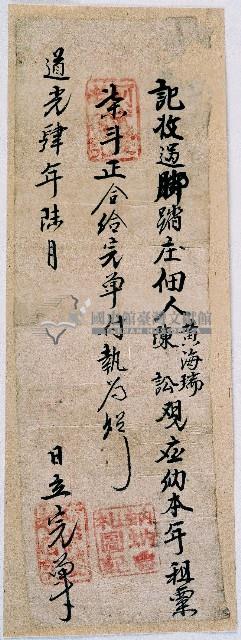 記收過腳踏庄佃人黃海瑞陳訟观应納本年租粟
柒斗正合给完单付执為炤
道光肆年陸月 日立完单
國史館臺灣文獻館